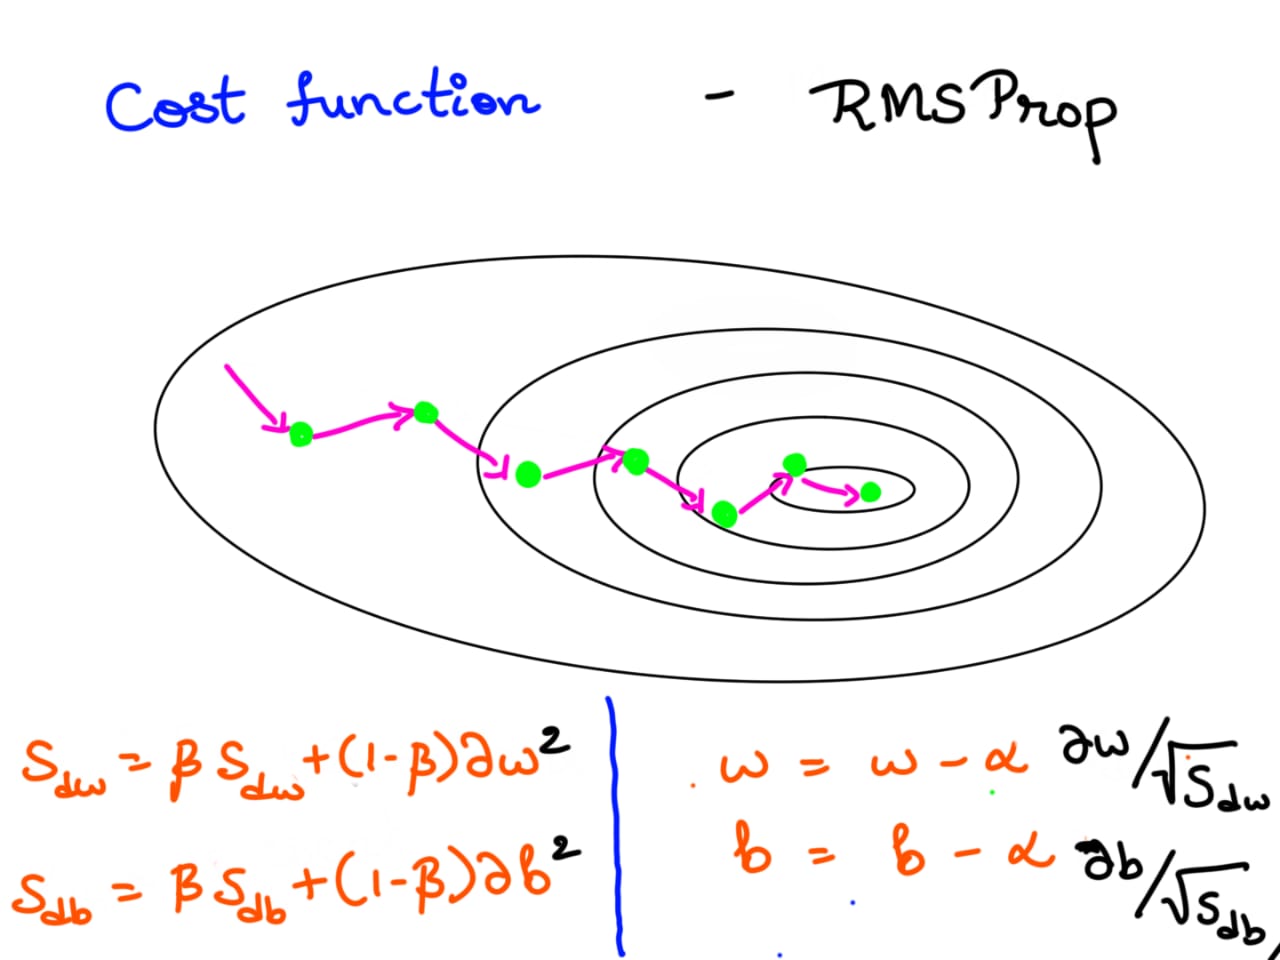 Cost function - RMSProp
Sdw = β Sdw + (1-β)∂w²
Sdb = β Sdb + (1-β)∂b²
w = w - α ∂w/√Sdw
b = b - α ∂b/√Sdb